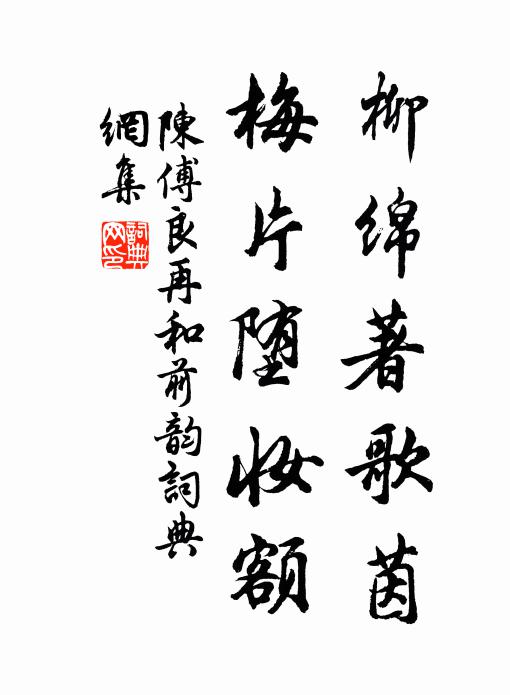 柳绵著歌茵
梅片堕妆额
陳傅良再和前韵詞典
網集
詞典
网印